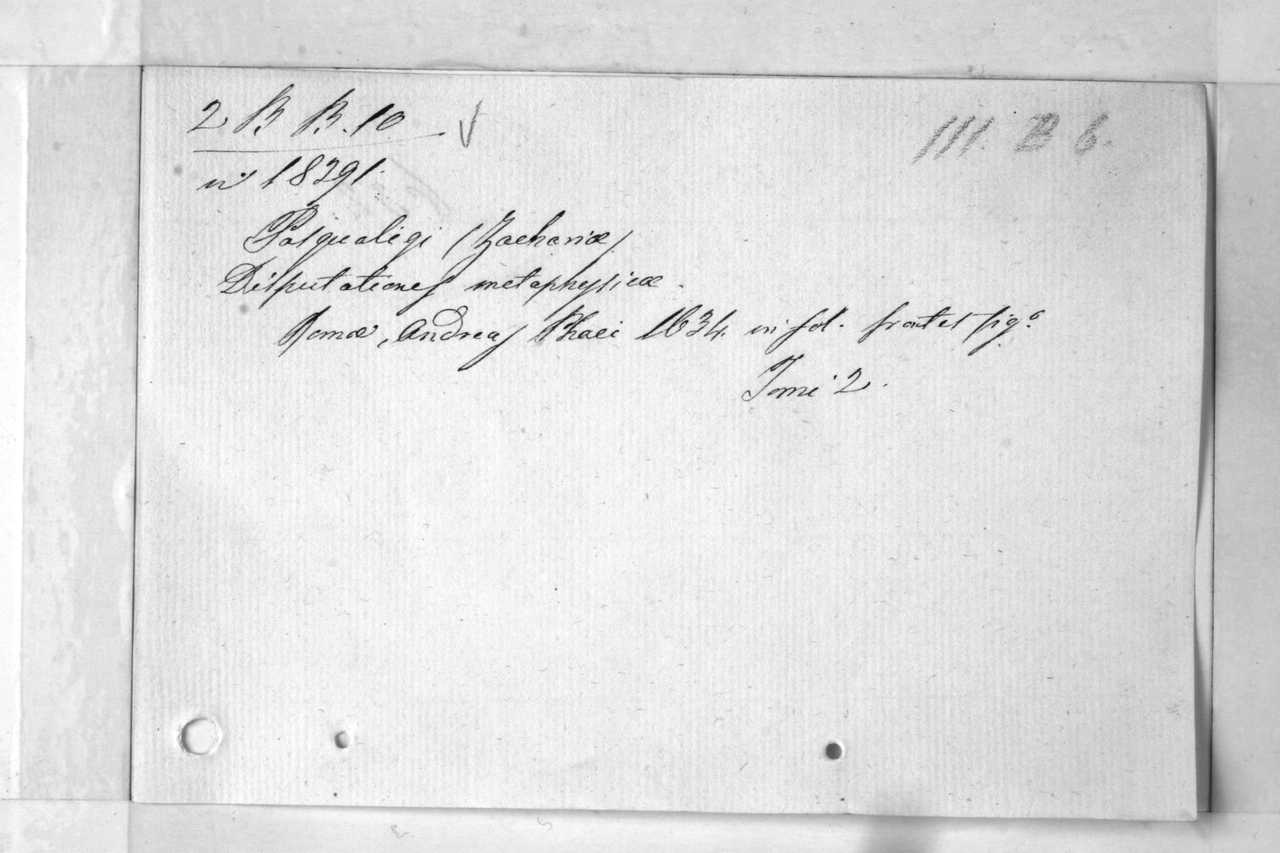 2 B B. 10 III. B 6.
n° 18291.
Pasqualigi (Zachariæ)
Disputationes metaphysicæ.
Romæ, Andreas Phaei 1634. in fol. frontes fig°
Tomi 2.